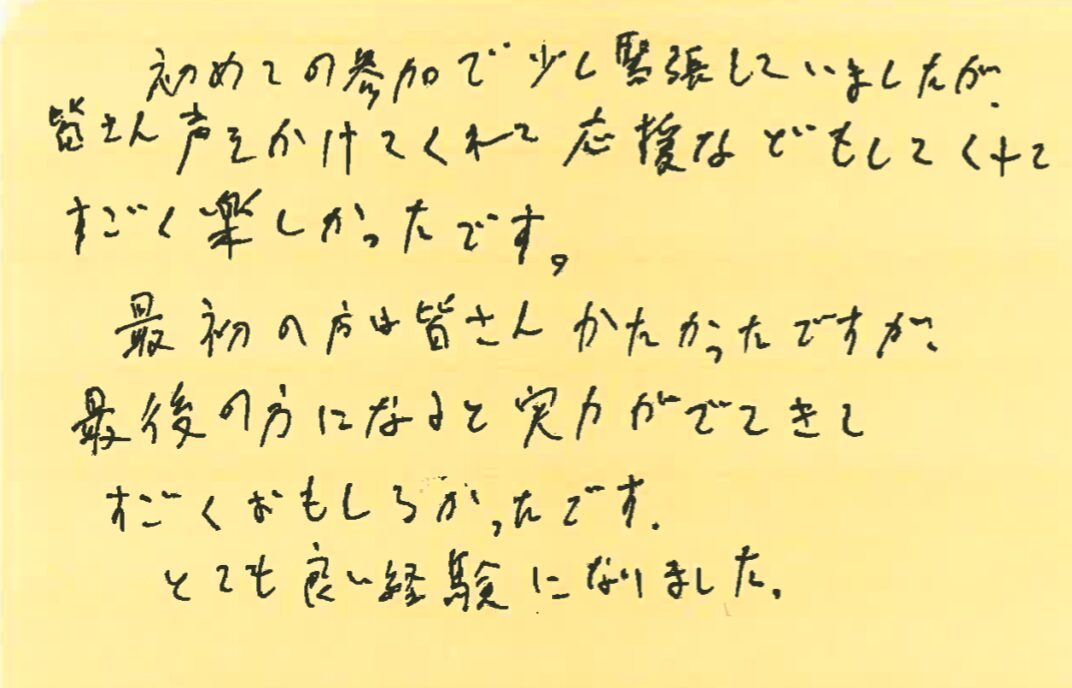 初めての参加で少し緊張していましたが、
皆さん声をかけてくれて応援などもしてくれて
すごく楽しかったです。
最初の方は皆さんかたかったですが、
最後の方になると実力がでてきて
すごくおもしろかったです。
とても良い経験になりました。